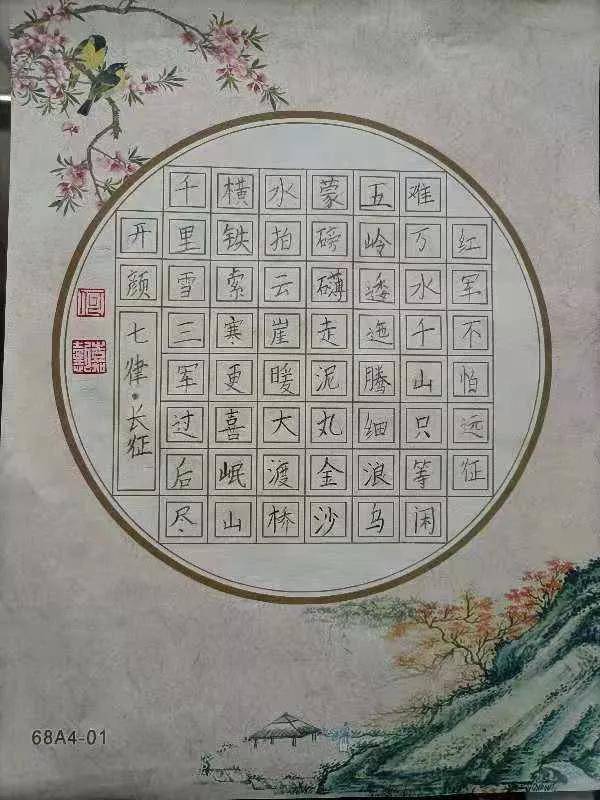 红军不怕远征
难万水千山只等闲
五岭逶迤腾细浪乌
蒙磅礴走泥丸金沙
水拍云崖暖大渡桥
横铁索寒更喜岷山
千里雪三军过后尽
开颜
七律·长征
何
68A4-01